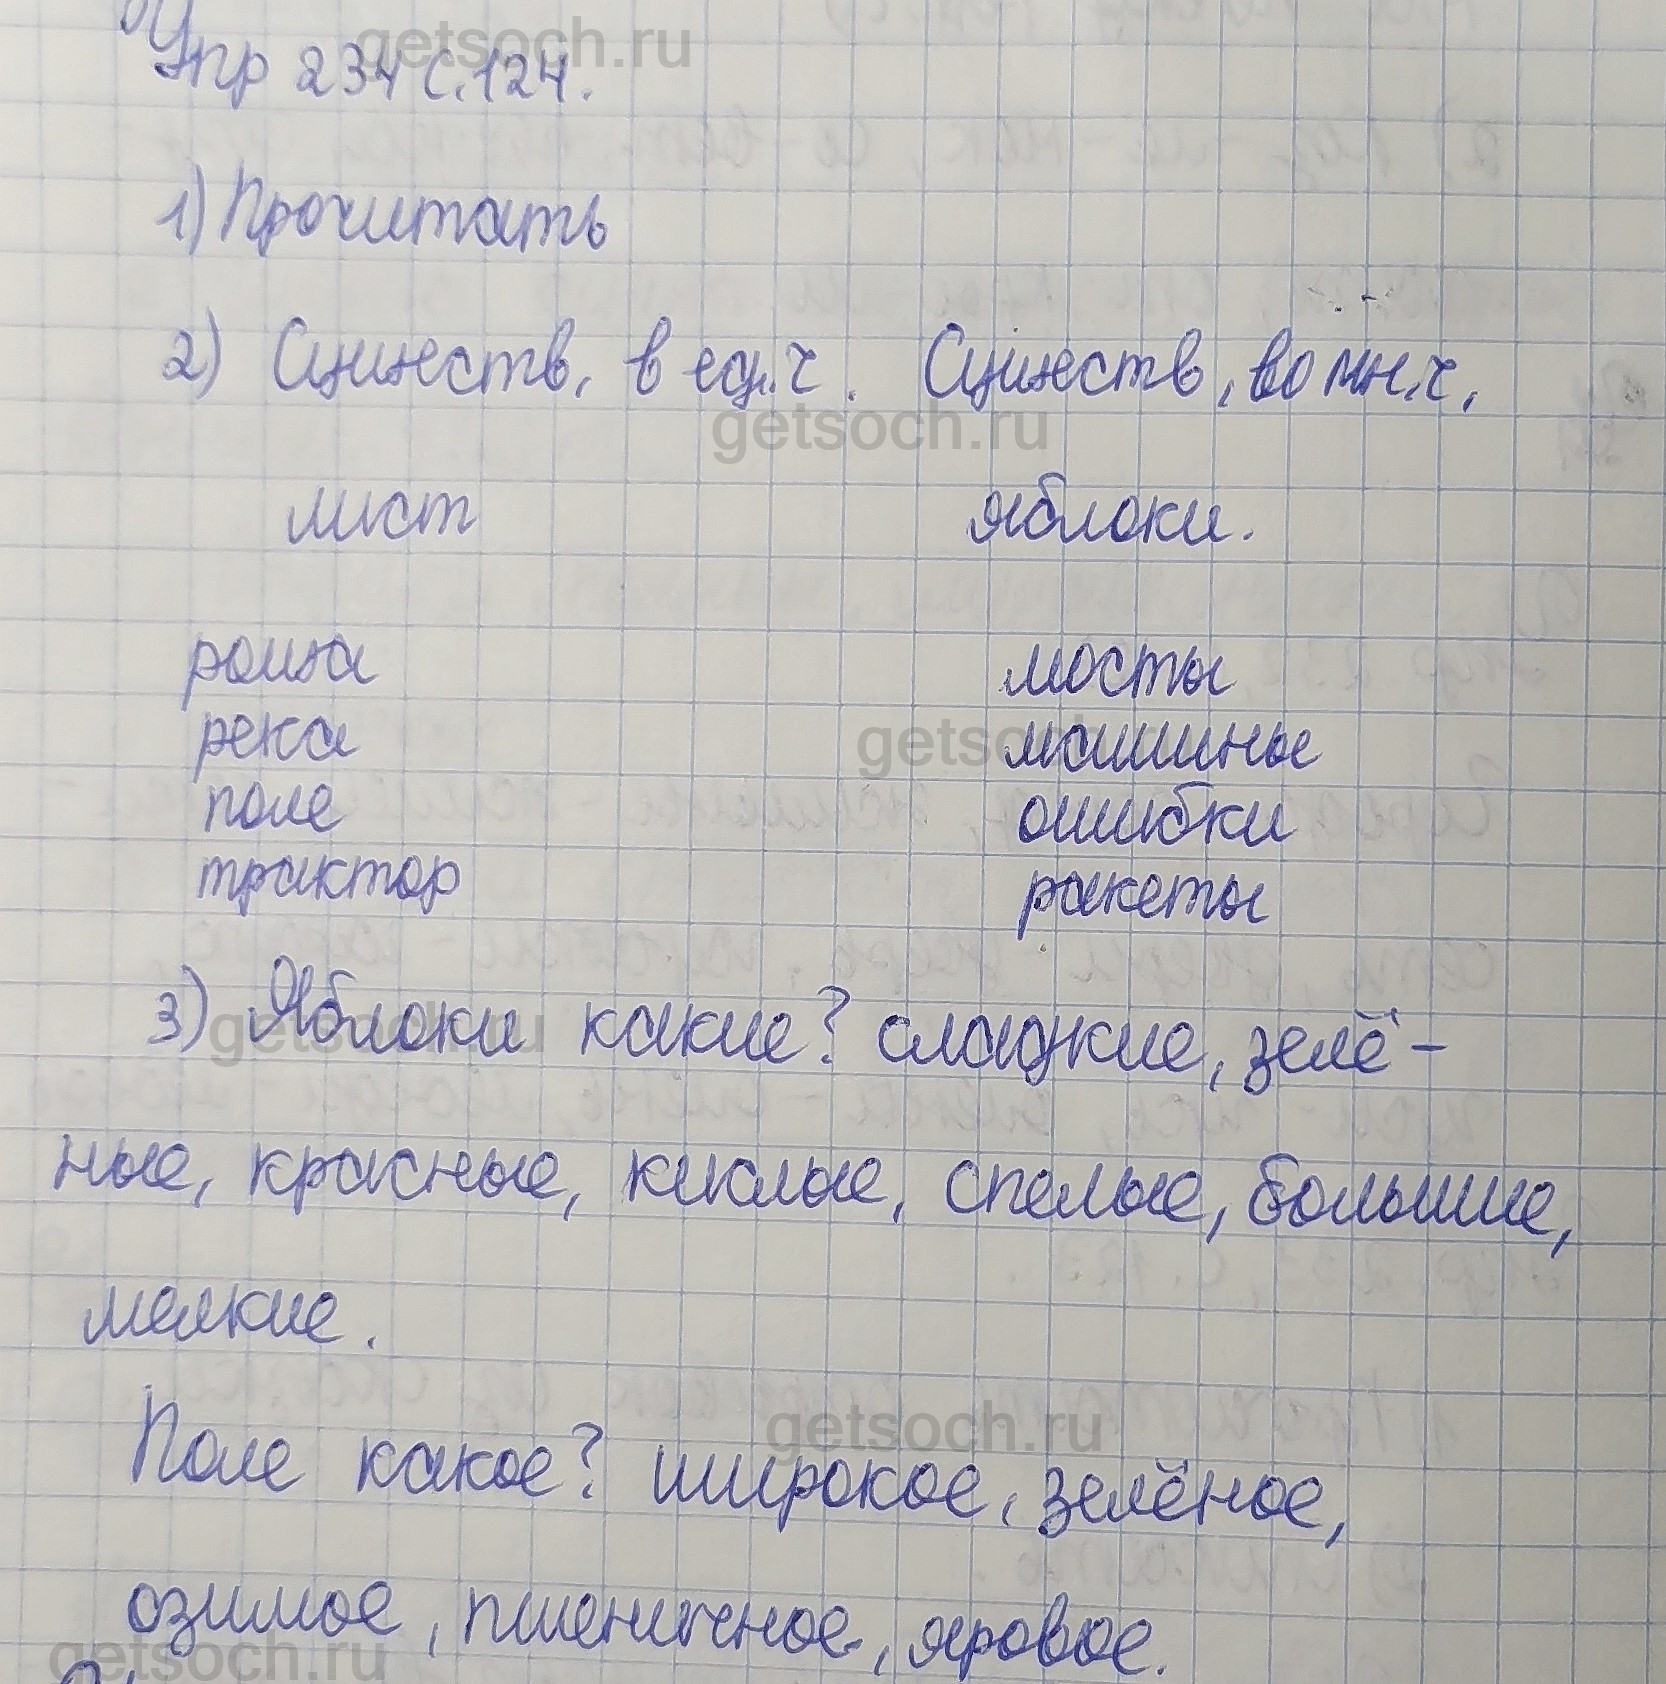 Упр 234 с. 124.
getsoch.ru
1) Прочитать
2) Существ. в ед. ч. Существ. во мн. ч.
getsoch.ru
лист яблоки.
роща мосты
река машины
getsoch.ru
поле ошибки
трактор ракеты
3) Яблоки какие? сладкие, зелё-
getsoch.ru
ные, красные, кислые, спелые, большие,
мелкие.
getsoch.ru
Поле какое? широкое, зелёное,
озимое, пшеничное, яровое.
getsoch.ru